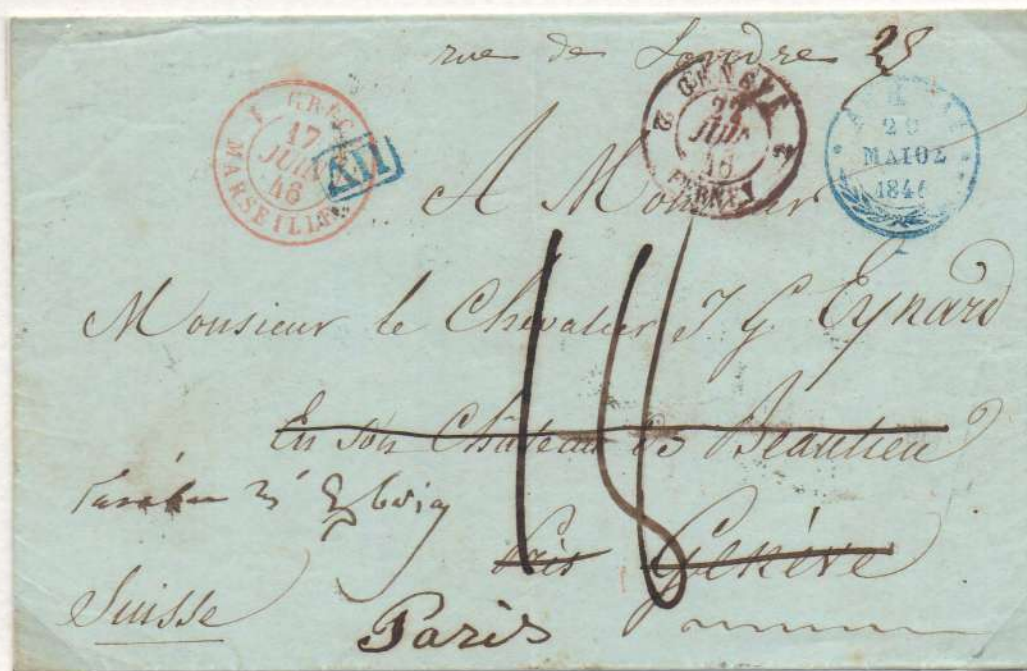 rue de Londre 28
GRÈCE
17
JUIN
46
MARSEILLE
GENÈVE
22
JUIN
46
FERNEY
2
20
ΜΑΙΟΣ
1846
A Monsieur
Monsieur le Chevalier J G Eynard
En son Château de Beaulieu
près Genève
Suisse
Paris